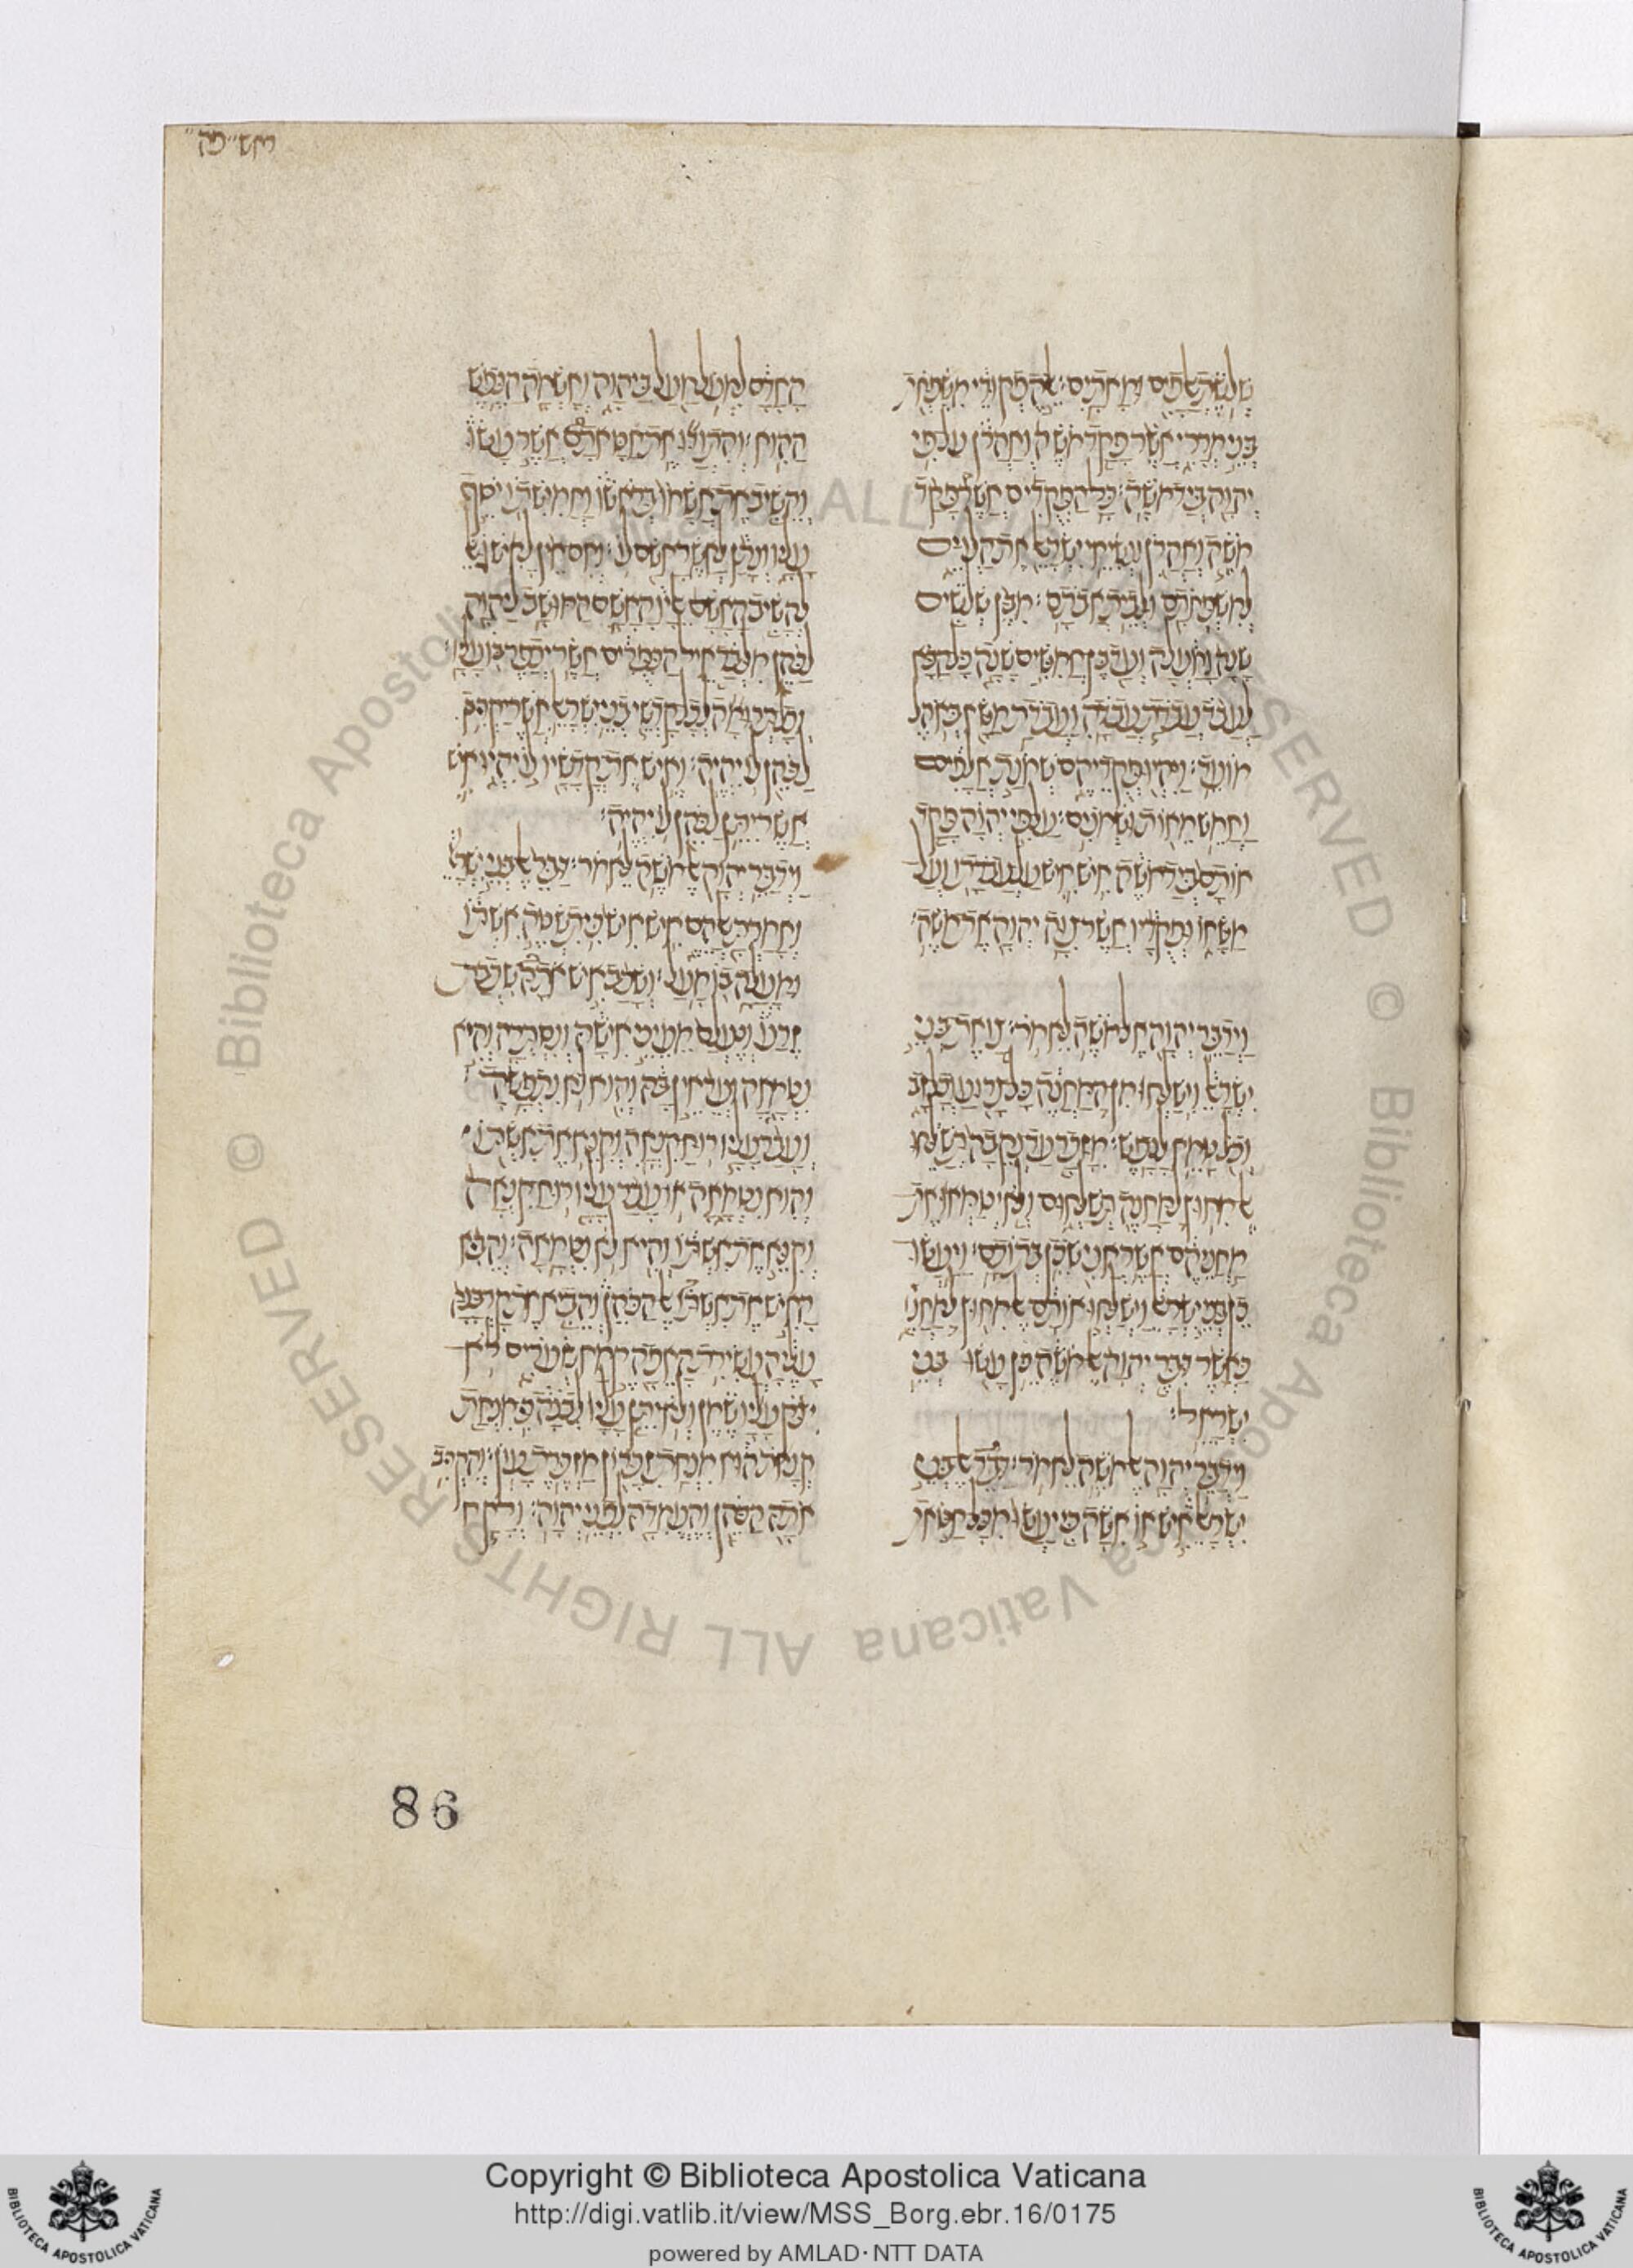 שלשת אלפים ומאתים: אלה פקודי משפחת
בני מררי אשר פקד משה ואהרן על פי
יהוה ביד משה: כל הפקדים אשר פקד
משה ואהרן ונשיאי ישראל את הלוים
למשפחתם ולבית אבתם: מבן שלשים
שנה ומעלה ועד בן חמשים שנה כל הבא
לעבד עבדת עבדה ועבדת משא באהל
מועד: ויהיו פקדיהם שמנת אלפים
וחמש מאות ושמנים: על פי יהוה פקד
אותם ביד משה איש איש על עבדתו ועל
משאו ופקדיו אשר צוה יהוה את משה:
וידבר יהוה אל משה לאמר: צו את בני
ישראל וישלחו מן המחנה כל צרוע וכל זב
וכל טמא לנפש: מזכר עד נקבה תשלחו
אל מחוץ למחנה תשלחום ולא יטמאו את
מחניהם אשר אני שכן בתוכם: ויעשו
כן בני ישראל וישלחו אותם אל מחוץ למחנה
כאשר דבר יהוה אל משה כן עשו בני
ישראל:
וידבר יהוה אל משה לאמר: דבר אל בני
ישראל איש או אשה כי יעשו מכל חטאת
האדם למעל מעל ביהוה ואשמה הנפש
ההוא: והתודו את חטאתם אשר עשו
והשיב את אשמו בראשו וחמישתו יסף
עליו ונתן לאשר אשם לו: ואם אין לאיש גאל
להשיב האשם אליו האשם המושב ליהוה
לכהן מלבד איל הכפרים אשר יכפר בו עליו:
וכל תרומה לכל קדשי בני ישראל אשר יקריבו
לכהן לו יהיה: ואיש את קדשיו לו יהיו איש
אשר יתן לכהן לו יהיה:
וידבר יהוה אל משה לאמר: דבר אל בני ישראל
ואמרת אלהם איש איש כי תשטה אשתו
ומעלה בו מעל: ושכב איש אתה שכבת
זרע ונעלם מעיני אישה ונסתרה והיא
נטמאה ועד אין בה והוא לא נתפשה:
ועבר עליו רוח קנאה וקנא את אשתו
והוא נטמאה או עבר עליו רוח קנאה
וקנא את אשתו והיא לא נטמאה: והביא
האיש את אשתו אל הכהן והביא את קרבנה
עליה עשירת האיפה קמח שערים לא
יצק עליו שמן ולא יתן עליו לבנה כי מנחת
קנאת הוא מנחת זכרון מזכרת עון: והקריב
אתה הכהן והעמדה לפני יהוה: ולקח
86
Copyright © Biblioteca Apostolica Vaticana
http://digi.vatlib.it/view/MSS_Borg.ebr.16/0175
powered by AMLAD·NTT DATA
BIBLIOTECA APOSTOLICA VATICANA
BIBLIOTECA APOSTOLICA VATICANA
© Biblioteca Apostolica Vaticana ALL RIGHTS RESERVED © Biblioteca Apostolica Vaticana ALL RIGHTS RESERVED